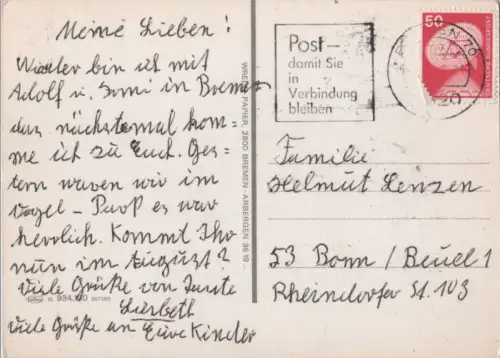 Meine Lieben!
Wieder bin ich mit
Adolf u. in Bremen
das nächstemal kom=
me ich zu Euch. Ges=
tern waren wir im
Vogel - Park es war
herrlich. Kommt Ihr
nun im August?
Viele Grüße von Tante
Lisbeth
Viele Grüße an Eure Kinder
W. 934.
WREDE PAPIER, 2800 BREMEN-ARBERGEN
Post -
damit Sie
in
Verbindung
bleiben
50
DEUTSCHE BUNDESPOST
Familie
Helmut Lenzen
53 Bonn / Beuel 1
Rheindorfer St. 103